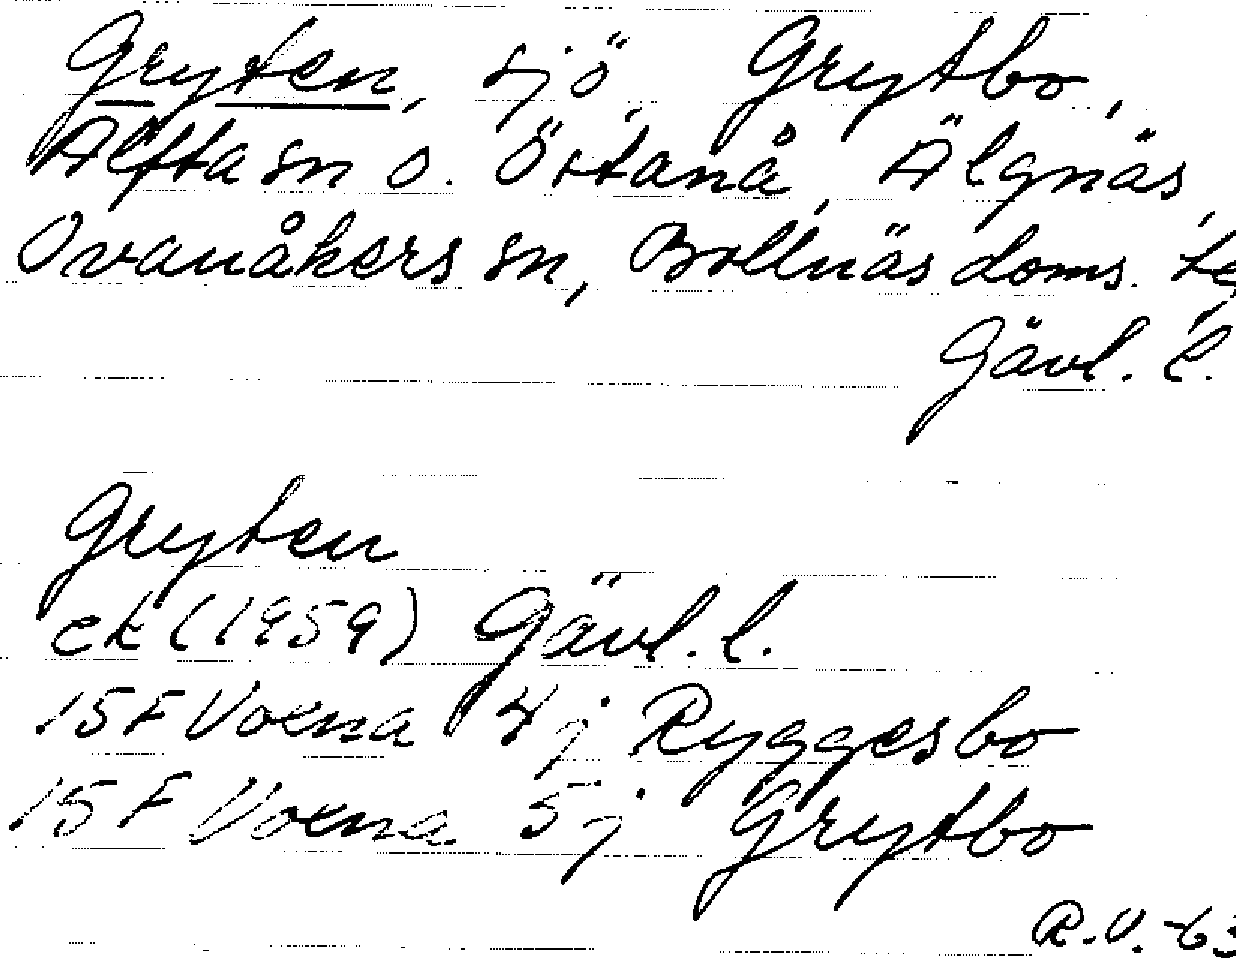 Gryten, sjö, Grytbo,
Alfta sn o. Östanå, Älgnäs,
Ovanåkers sn, Bollnäs doms.
Gävl. l.
Gryten
ek (1959) Gävl. l.
15F Voxna 4j Ryggesbo
15F Voxna 5j Grytbo
R.V. -63